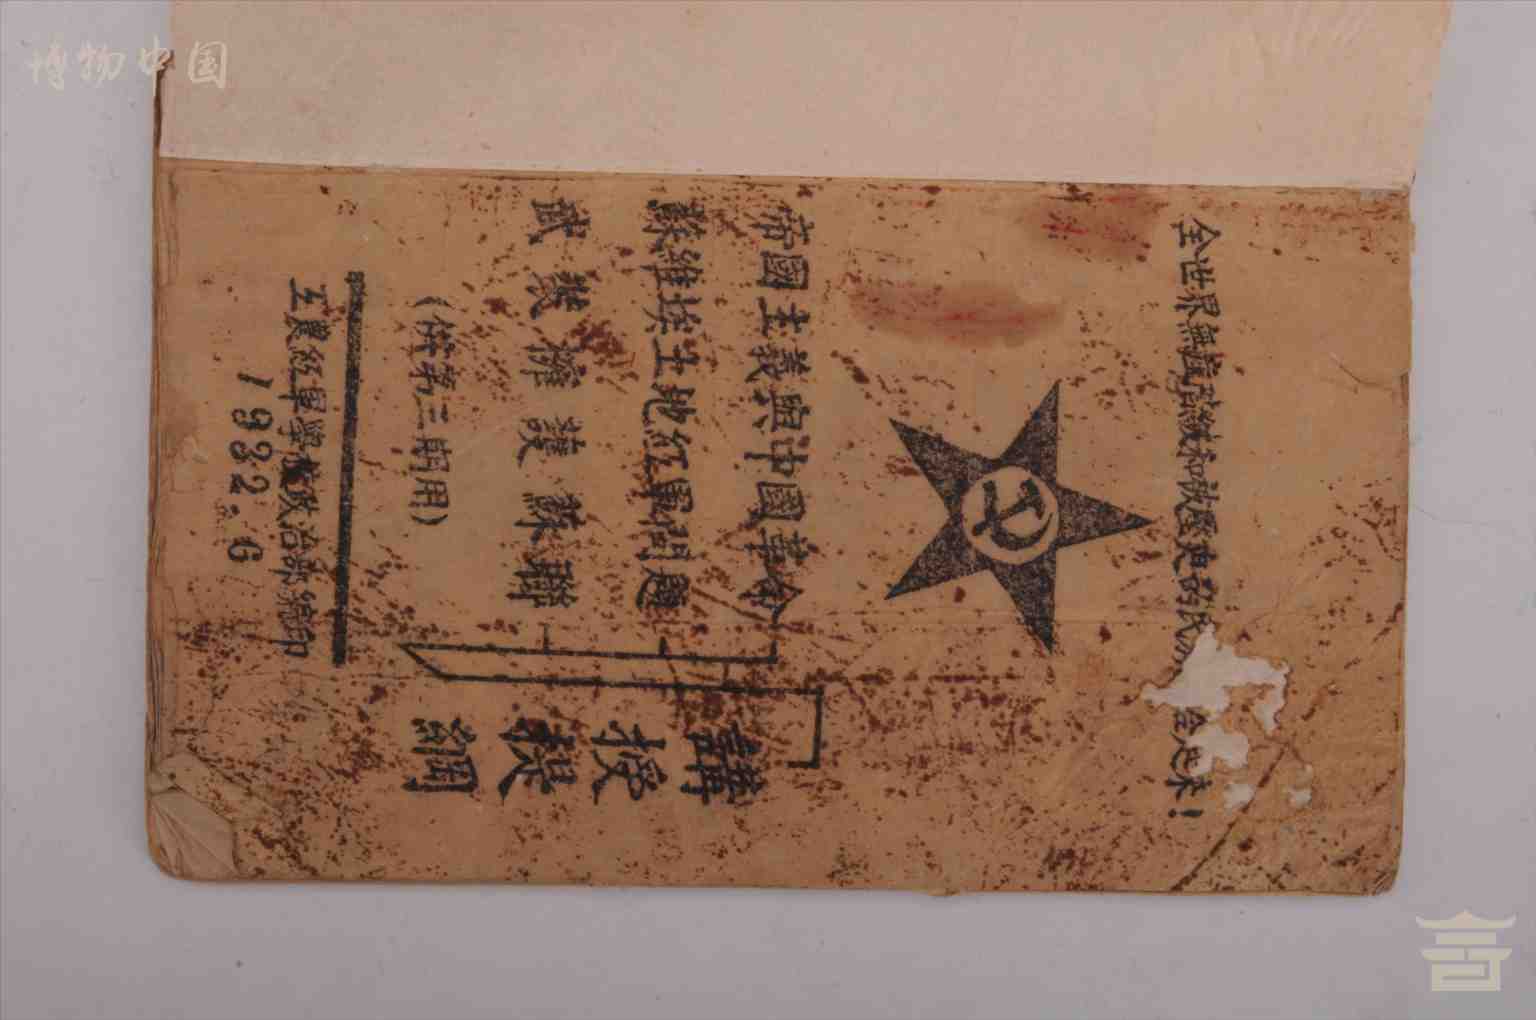 博物中国
全世界無產階級和被壓迫的民
合起來!
帝國主義與中國革命
蘇維埃土地紅軍問題
武裝擁護蘇聯
講授提綱
(第三期用)
工農紅軍學校政治部編印
1932.6